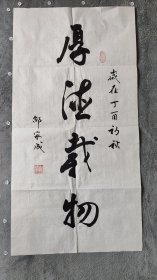 厚德载物
岁在丁酉初秋
邹家成